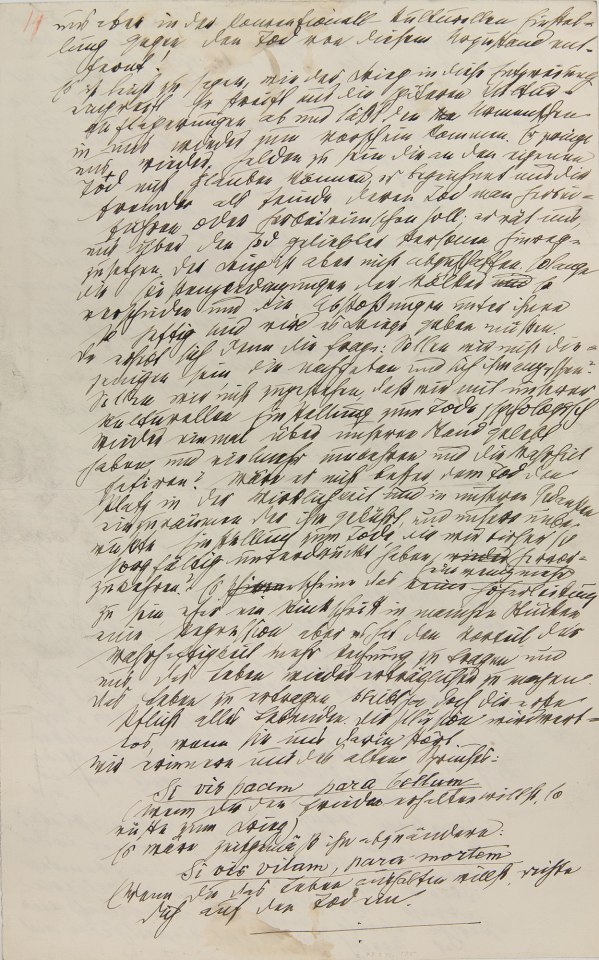 uns aber in der konventionell kulturellen Einstel-
lung gegen den Tod von diesem Urzustand ent-
fernt!
Es ist leicht zu sagen, wie der Krieg in diese Entzweiung
eingreift. Er streift uns die späteren Kultur-
auflagerungen ab und läßt den Urmenschen
in uns wieder zum Vorschein kommen. Er zwingt
uns wieder, Helden zu sein die an den eigenen
Tod nicht glauben können, er bezeichnet uns die
Fremden als Feinde deren Tod man herbei-
führen oder herbeiwünschen soll; er rät uns,
uns über den Tod geliebter Personen hinweg-
zusetzen. Der Krieg ist aber nicht abzuschaffen. Solange
die Existenzbedingungen der Völker so
verschieden und die Abstoßungen unter ihnen
so heftig sind wird es Kriege geben müssen.
Da erhebt sich denn die Frage: Sollen wir nicht die-
jenigen sein die nachgeben und sich ihm anpassen?
Sollen wir nicht zugestehen, daß wir mit unserer
kulturellen Einstellung zum Tode psychologisch
wieder einmal über unseren Stand gelebt
haben und vielmehr umkehren und die Wahrheit
fatiren? Wäre es nicht besser dem Tod den
Platz in der Wirklichkeit und in unseren Gedanken
einzuräumen der ihm gebührt, und unsere unbe-
wußte Einstellung zum Tode die wir bisher so
sorgfältig unterdrückt haben, hervor-
ein wenig mehr
zukehren? Es scheint das keine Höherleistung
zu sein eher ein Rückschritt in manchen Stücken
eine Regression aber es hat den Vorteil der
Wahrhaftigkeit mehr Rechnung zu tragen und
uns das Leben wieder erträglicher zu machen.
Das Leben zu ertragen bleibt ja doch die erste
Pflicht aller Lebenden. Die Illusion wird wert-
los, wenn sie uns darin stört.
Wir erinnern uns des alten Spruches:
Si vis pacem para bellum
(Wenn du den Frieden erhalten willst, so
rüste zum Krieg)
Es wäre zeitgemäß ihn abzuändern:
Si vis vitam, para mortem
(Wenn du das Leben aushalten willst, richte
dich auf den Tod ein.